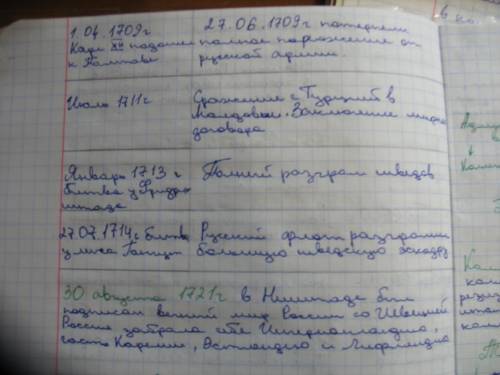 1.04.1709г
Карл XII подошел
к Полтаве
27.06.1709г потерпели
полное поражение от
русской армии.
Июль 1711г
Сражение с Турцией в
Молдовии. Заключение мирн
договора
Январь 1713 г
битва у Фридрих
штадта
Полный разгром шведов
27.07.1714г битва
у мыса Гангут
Русский флот разгромил
большую шведскую эскадру
30 августа 1721г в Ништадте был
подписан вечный мир России со Швецией
Россия забрала себе Ингерманландию,
часть Карелии, Эстляндию и Лифляндию